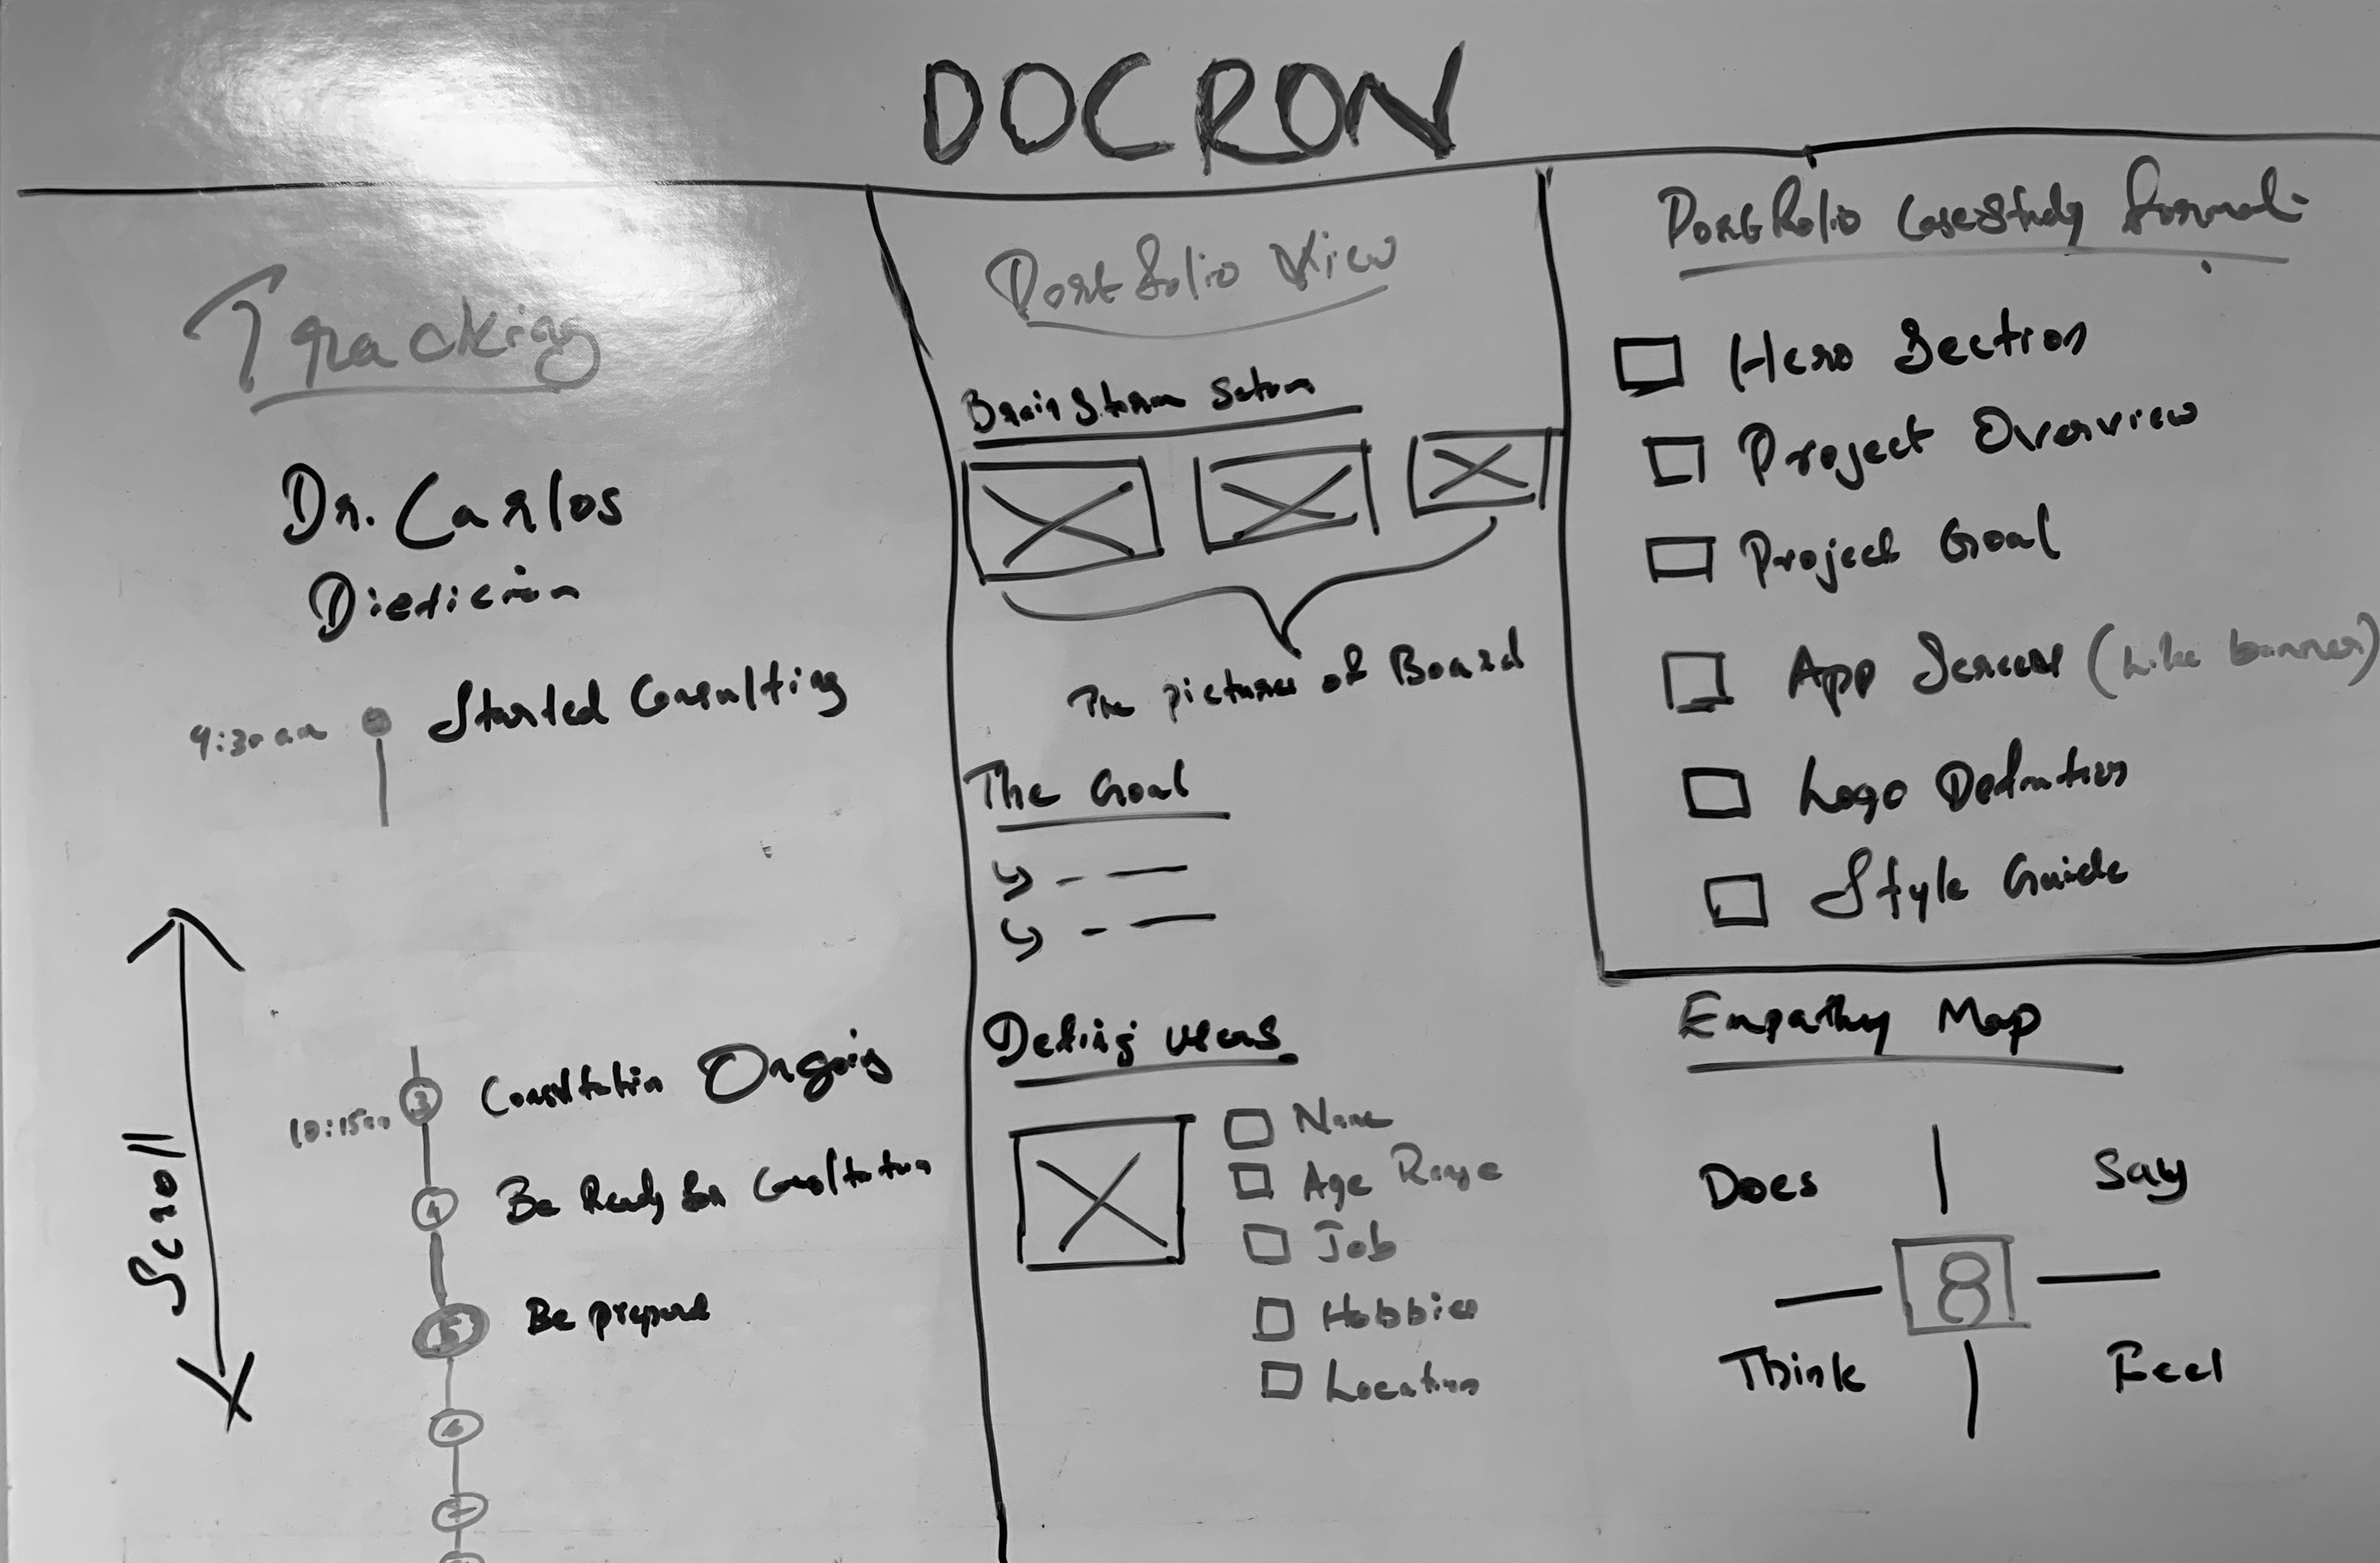 DOCRON
Tracking
Dr. Carlos
Dieticián
9:30 am Started Consulting
Scroll
10:15am 3 Consultation Ongoing
4 Be Ready for Consultation
5 Be prepared
6
7
Portfolio View
BrainStorm
The pictures of Board
The Goal
Users
Name
Age Range
Job
Hobbies
Location
Portfolio CaseStudy format
Hero Section
Project Overview
Project Goal
App Screens (Like banner)
Logo Defination
Style Guide
Empathy Map
Does
Say
Think
Feel